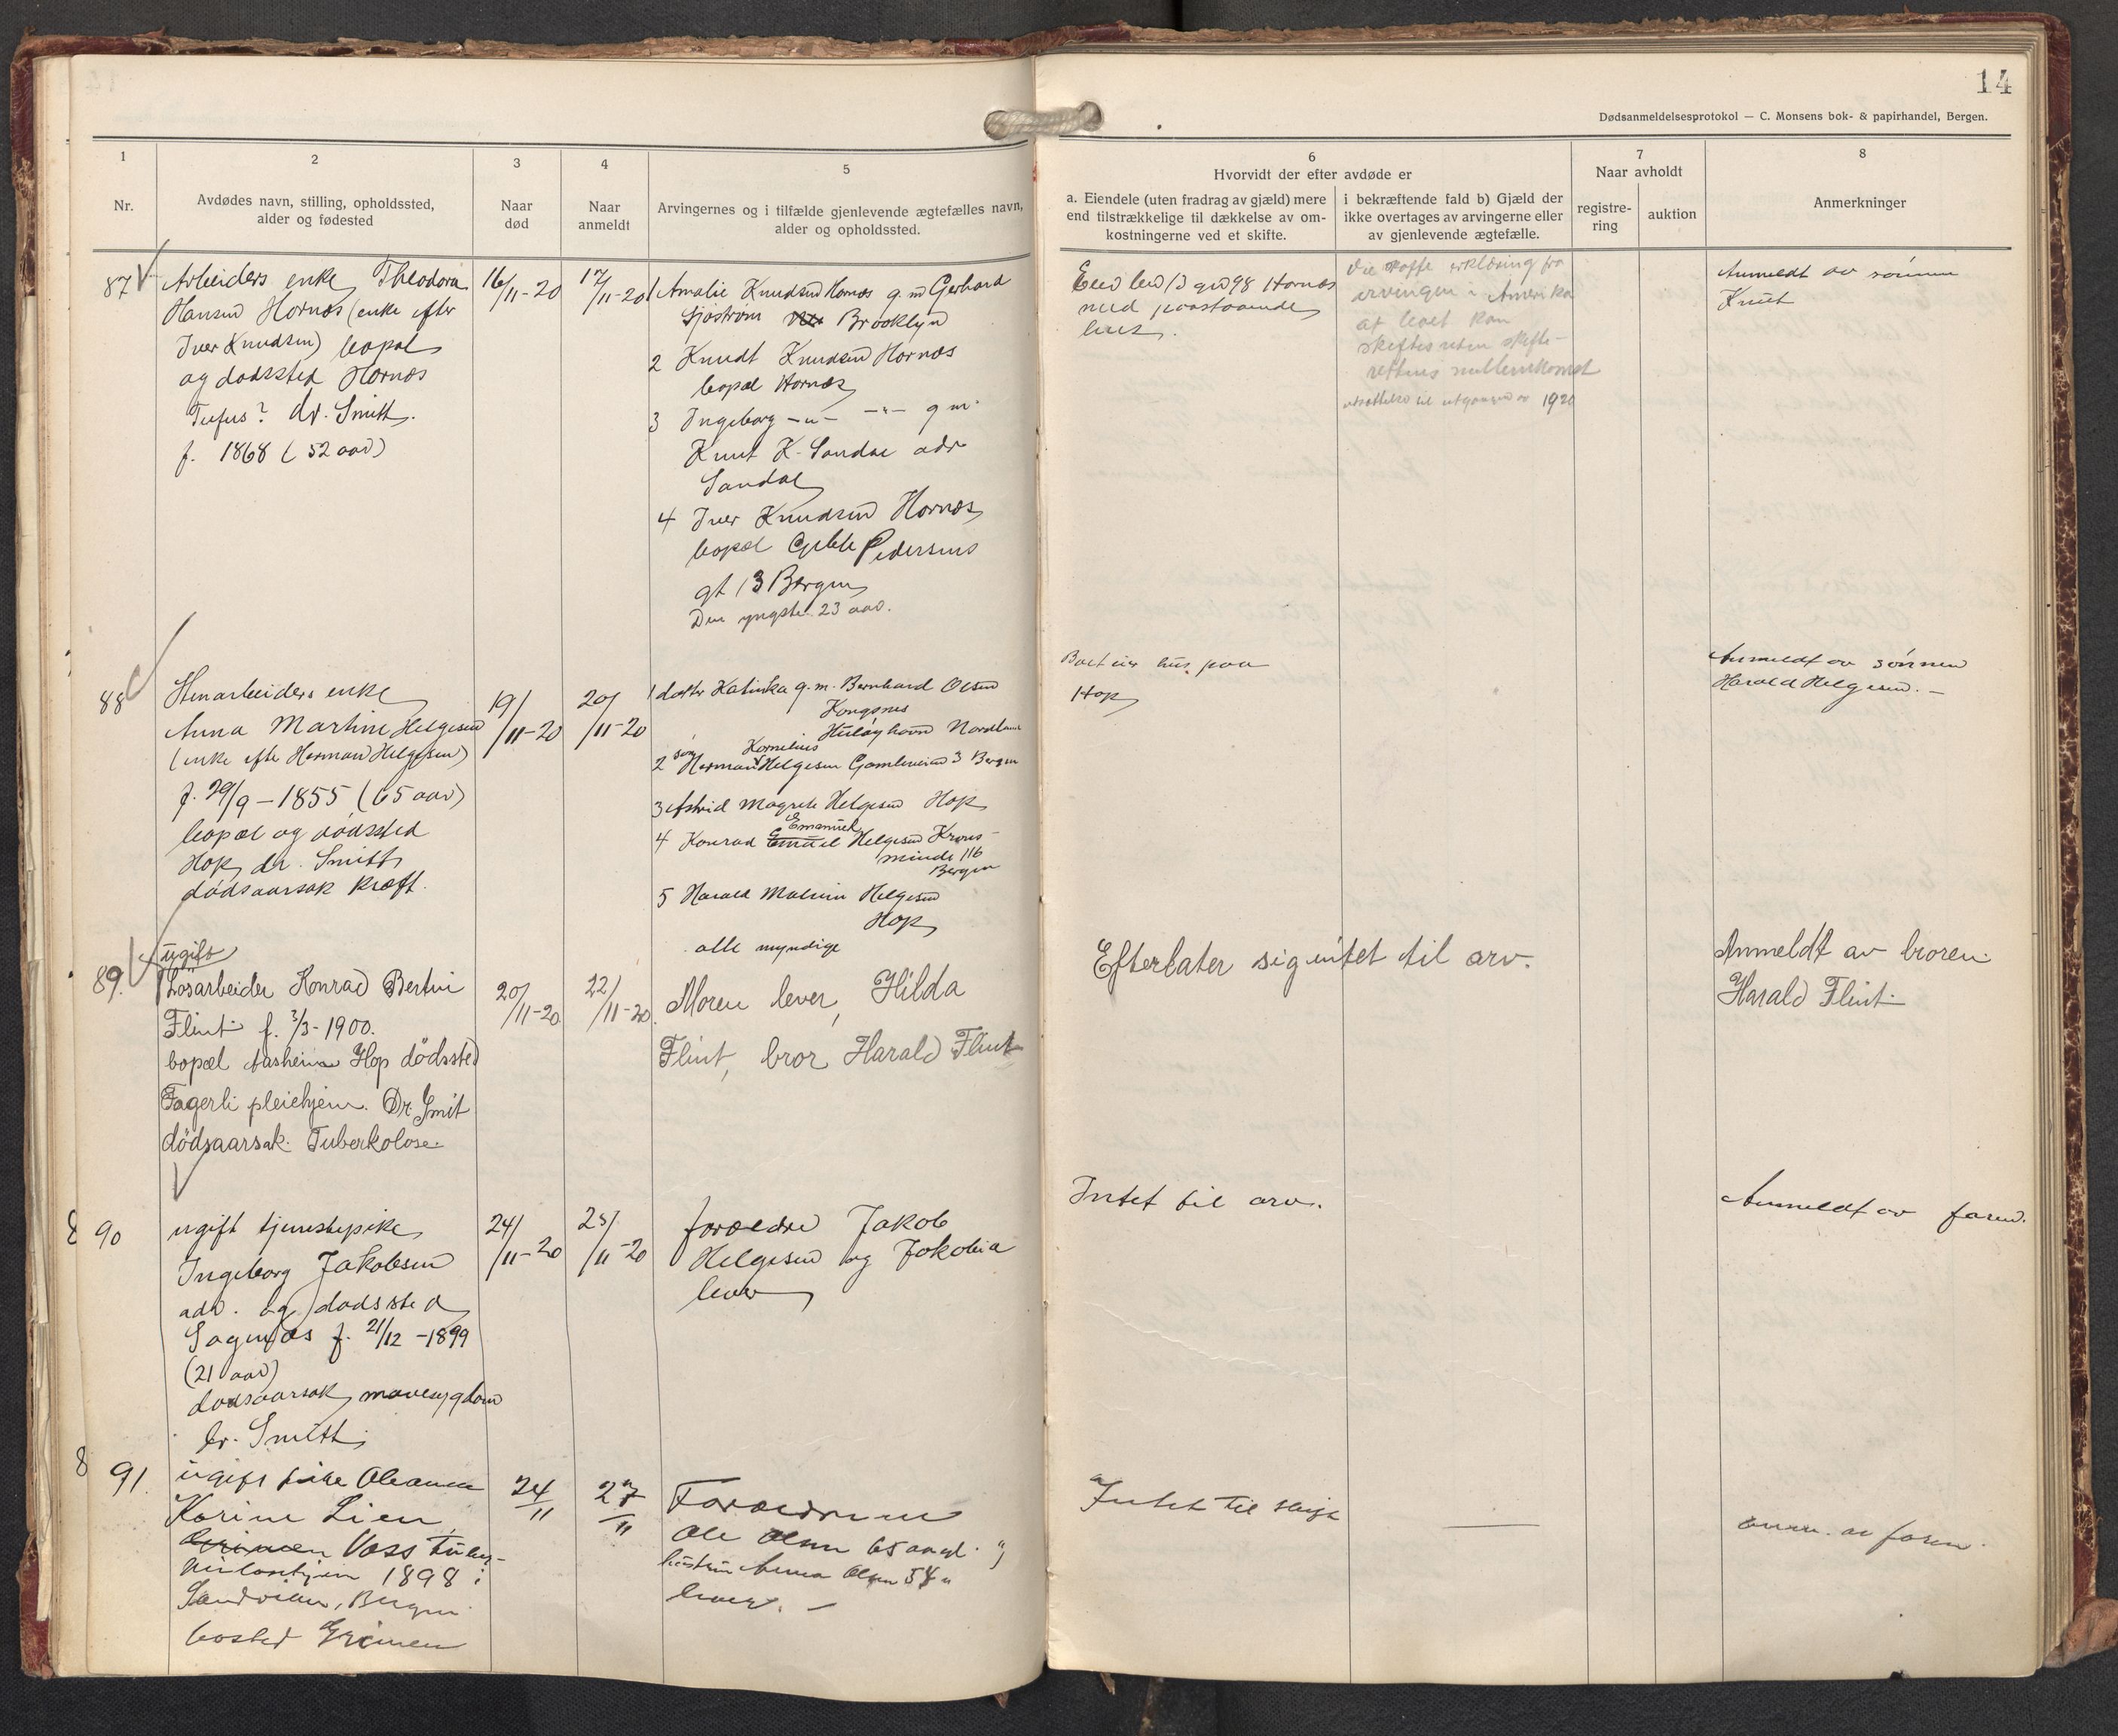 14
Dødsanmeldelsesprotokol — C. Monsens bok- & papirhandel, Bergen.
1
2
3
4
5
6
7
8
Nr.
Avdødes navn, stilling, opholdssted,
alder og fødested
Naar
død
Naar
anmeldt
Arvingernes og i tilfælde gjenlevende ægtefælles navn,
alder og opholdssted.
Hvorvidt der efter avdøde er
a. Eiendele (uten fradrag av gjæld) mere
end tilstrækkelige til dækkelse av om-
kostningerne ved et skifte.
i bekræftende fald b) Gjæld der
ikke overtages av arvingerne eller
av gjenlevende ægtefælle.
Naar avholdt
registre-
ring
auktion
Anmerkninger
87
Arbeiders enke Theodora
Hansen Hornæs (enke efter
Iver Knudsen) bopæl
og dødssted Hornæs
Tyfus? dr. Smitt.
f. 1868 (52 aar)
16/11-20
17/11-20
1 Amalie Knudsen Hornæs g. m Gerhard
Sjøstrøm Brooklyn
2 Knudt Knudsen Hornæs
bopæl Hornæs
3 Ingeborg -"- -"- g m.
Knut K. Sandal adr
Sandal
4 Iver Knudsen Hornæs
bopæl Gjelle Pedersens
gt 13 Bergen
Den yngste 23 aar.
gr 98 Hornæs
med paastaaende
hus.
Vil skaffe erklæring fra
arvingen i Amerika
at boet kan
skiftes uten skifte-
rettens mellemkomst
utsættelse til utgangen av 1920
Anmeldt av sønnen
Knut
88
Stenarbeiders enke
Anna Martine Helgesen
(enke efter Herman Helgesen)
f. 29/9 – 1855 (65 aar)
bopæl og dødssted
Hop, dr. Smitt,
dødsaarsak kræft.
19/11-20
20/11-20
1 datter Katinka g. m. Bernhard Olsen
Kongsnes
Husøyhavn Nordland
2 søn Herman Kornelius Helgesen Gamleveien 3 Bergen
3 Astrid Magrete Helgesen Hop
4 Konrad Emuel Emanuel Helgesen Krons-
minde 116
Bergen
5 Harald Malvin Helgesen
Hop
alle myndige
Boet eier hus paa
Hop
Anmeldt av sønnen
Harald Helgesen. –
89.
ugift
Løsarbeider Konrad Bertin
Flint f. 3/3-1900.
bopæl Aasheim Hop dödssted
Fagerli pleiehjem. Dr. Smit
dödsaarsak. Tuberkolose.
20/11-20
22/11-20.
Moren lever, Hilda
Flint, bror Harald Flint
Efterlater sig intet til arv.
Anmeldt av broren
Harald Flint.
8
90
ugift tjenestepike
Ingeborg Jakobsen
adr. og dødssted
Sagenæs f. 21/12 -1899
(21 aar)
dødsaarsak mavesygdom
Dr. Smitt
24/11-20
25/11-20
forældre Jakob
Helgesen og Jakobia
lever
Intet til arv.
Anmeldt av faren.
8
91.
ugift pike Oleanna
Karine Lien
Grimen Voss tuber-
1898 i
Sandviken, Bergen
bosted Grimen
24/11
27/11
Forældrene
Ole Olsen 65 aar gl. og
hustru Anna Olsen 54 "
lever. –
Intet til skifte
—
anm. av faren.